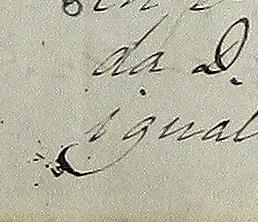 da D.
igual